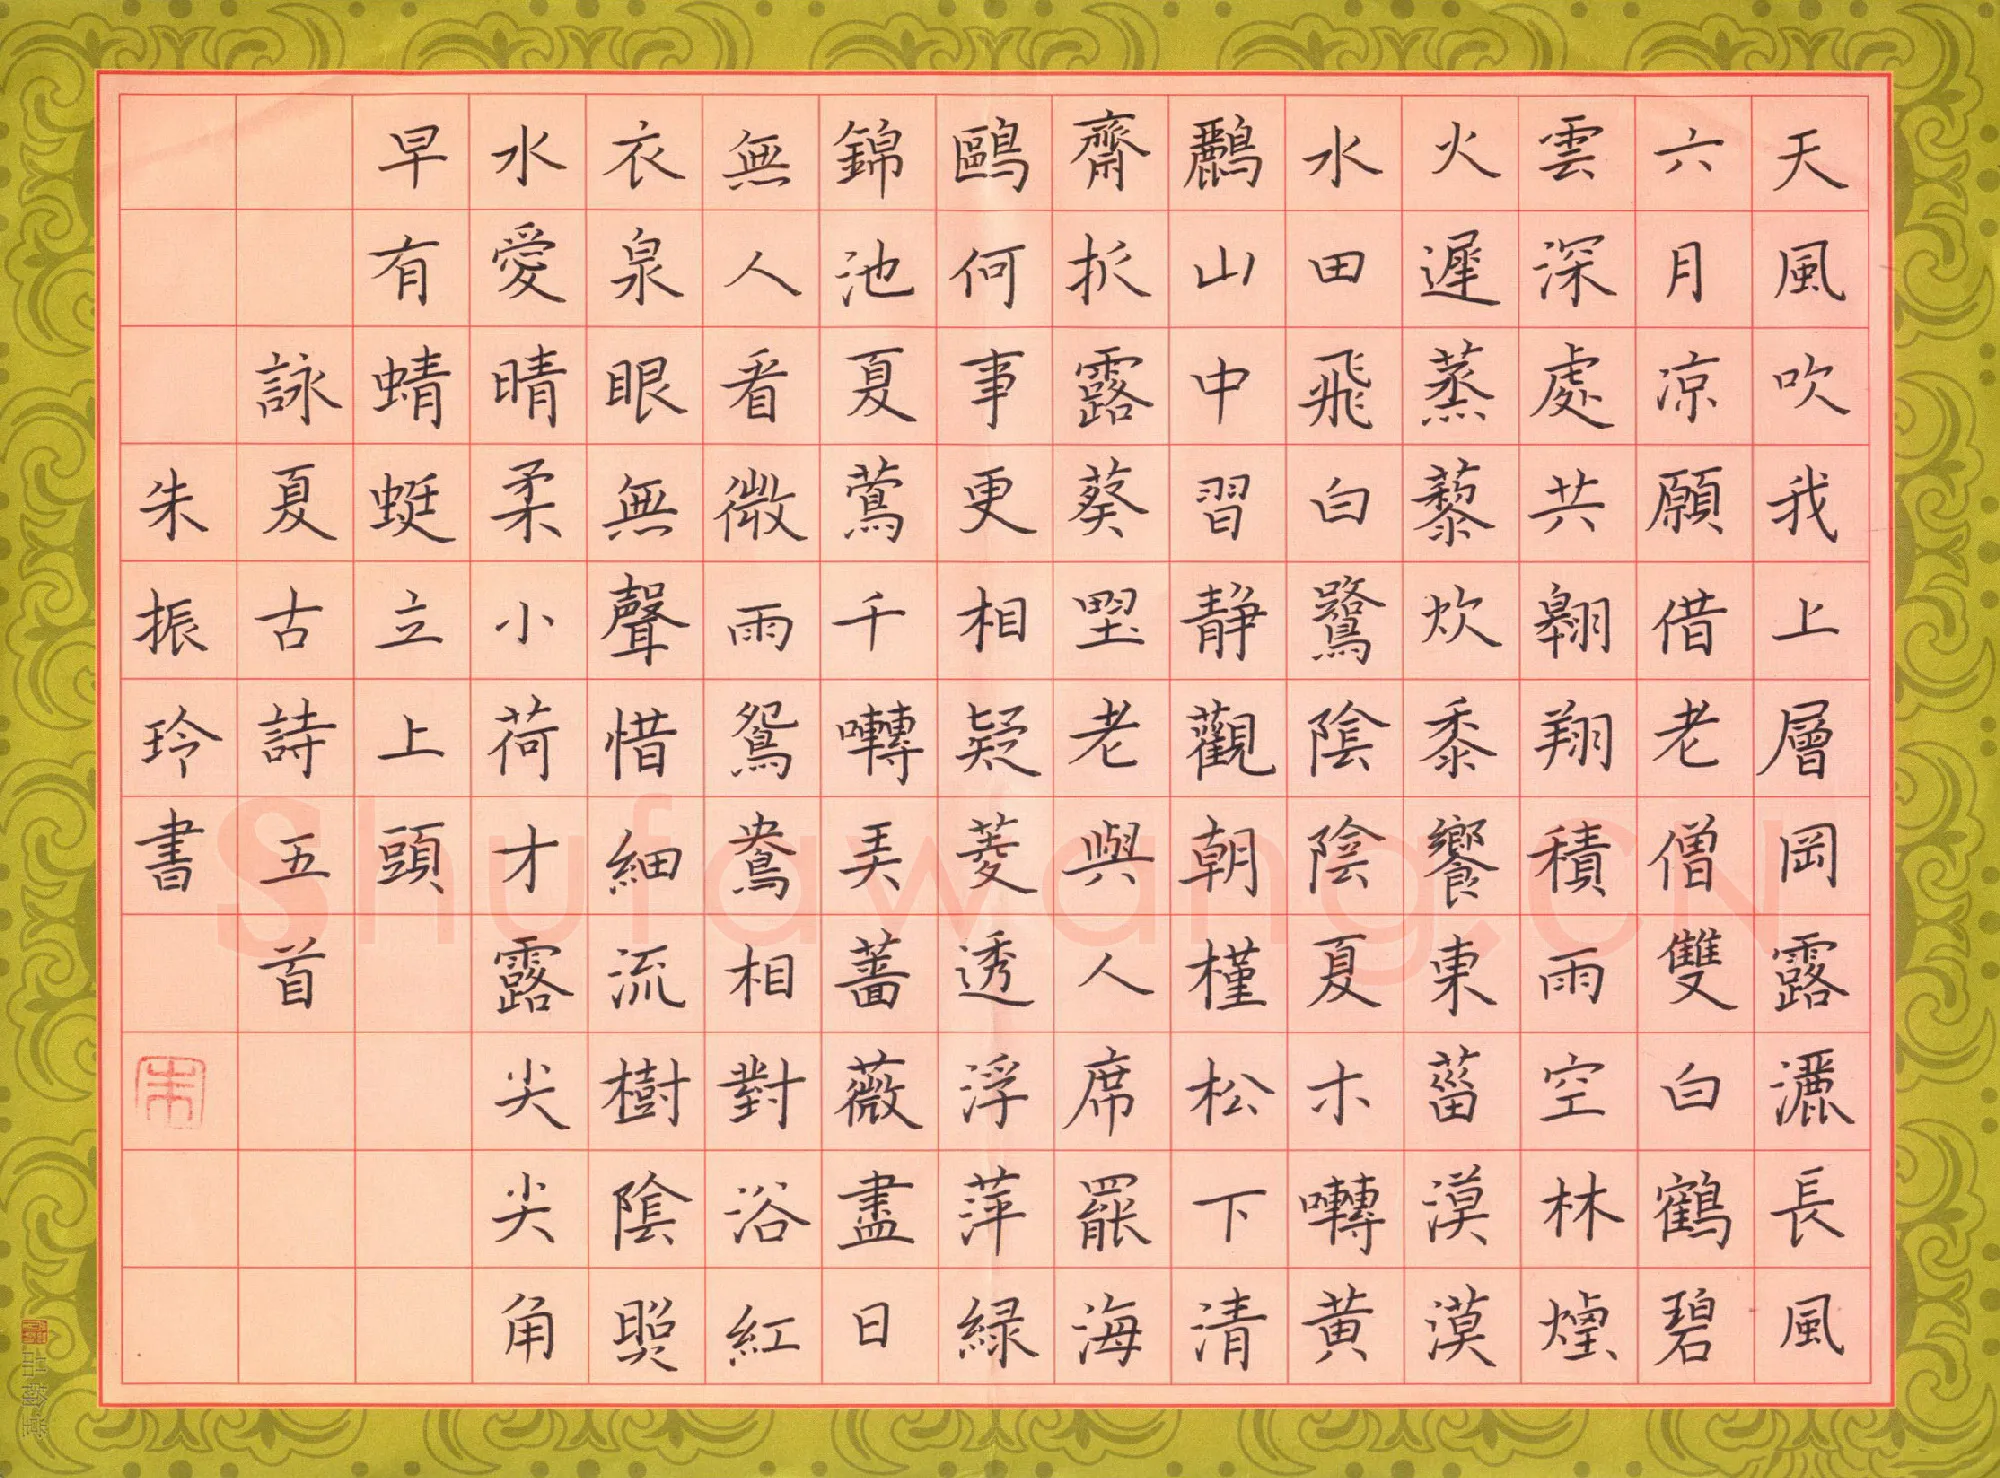 天風吹我上層岡露灑長風
六月凉願借老僧雙白鶴碧
雲深處共翱翔積雨空林煙
火遲蒸藜炊黍饗東菑漠漠
水田飛白鷺陰陰夏木囀黃
鸝山中習靜觀朝槿松下清
齋折露葵野老與人席罷海
鷗何事更相疑菱透浮萍緑
錦池夏鶯千囀弄薔薇盡日
無人看微雨鴛鴦相對浴紅
衣泉眼無聲惜細流樹陰照
水愛晴柔小荷才露尖尖角
早有蜻蜓立上頭
詠夏古詩五首
朱振玲書
朱
品翰堂
Shufawang.CN